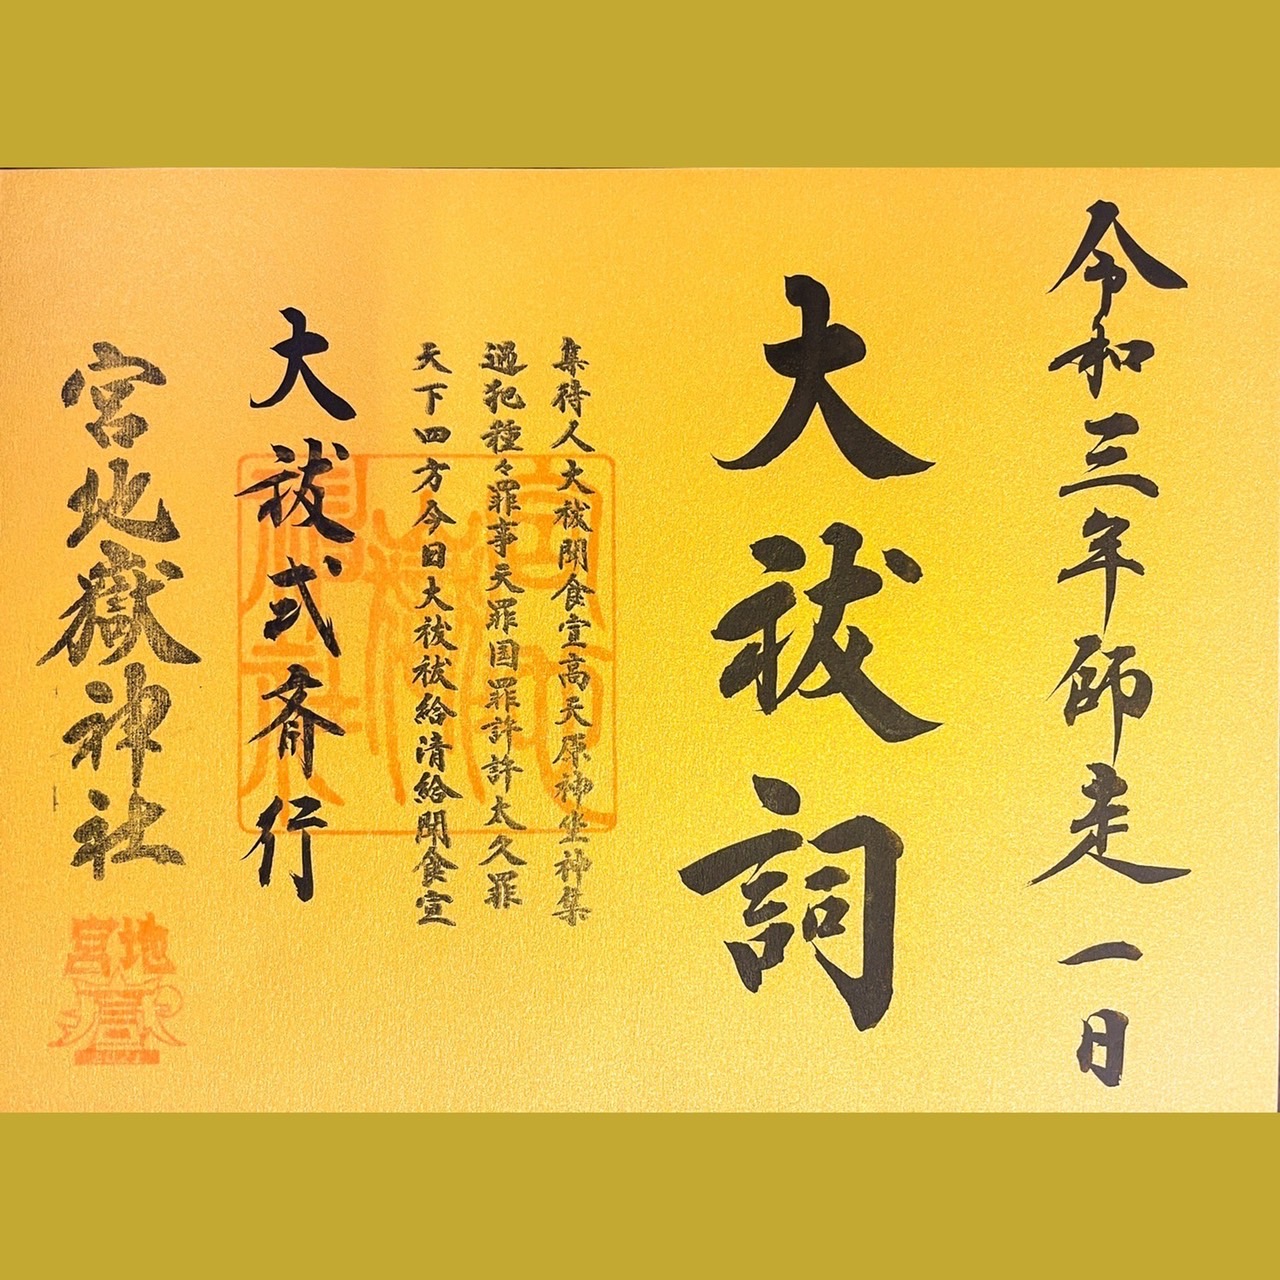 令和三年師走一日
大祓詞
集待人大祓聞食宣高天原神坐神集
過犯種々罪事天罪国罪許許太久罪
天下四方今日大祓祓給清給聞食宣
大祓式斎行
宮地嶽神社
宮地